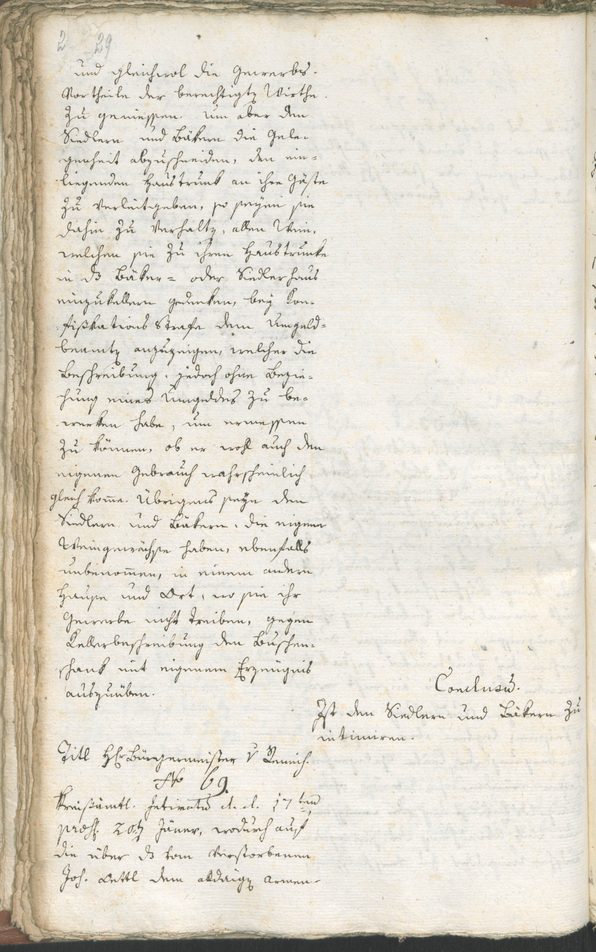 2 29
und gleichwol die Gewerbs-
Vortheile der berechtigtn Wirthe
zu geniessen. um aber den
Siedlern und Bäkern die Gele-
genheit abzuschneiden, den ein-
liegenden Haustrunk an ihre Gäste
zu verleitgeben, so seyen sie
dahin zu verhaltn, allen Wein,
welchen sie zu ihren Haustrunke
in ds Bäker- oder Siedlerhaus
einzukellern gedenken, bey Kon-
fiskations Strafe dem Umgeld-
beamtn anzuzeigen, welcher die
Beschreibung, jedoch ohne Bezie-
hung eines Umgeldes zu be-
werken habe, um ermessen
zu können, ob er wohl auch den
eigenen Gebrauch wahrscheinlich
gleich komme. Übrigens seye den
Siedlern und Bäkern, die eigene
Weingewächse haben, ebenfalls
unbenommen, in einem andern
Hause und Ort, wo sie ihr
Gewerbe nicht treiben, gegen
Kellerbeschreibung den Buschen-
schank mit eigenem Erzeugnis
auszuüben.
Conclusū.
Ist den Siedlern und Bäkern zu
intimiren.
Titl Hr Bürgermeister v
No 69.
Kreisämtl. Intimatū d. d. 17ten
praes. 20tn Jäner, wodurch auf
die über ds vom verstorbenen
Joh. Oettl dem Armen-